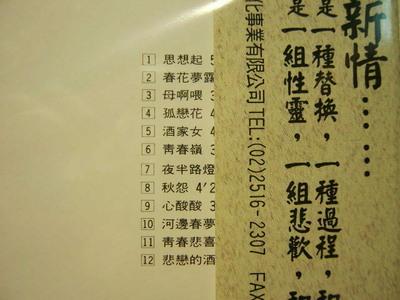 1 思想起 5
2 春花夢露
3 母啊喂 3
4 孤戀花 4
5 酒家女 4
6 青春嶺 3
7 夜半路燈
8 秋怨 4'2
9 心酸酸 3
10 河邊春夢
11 青春悲喜
12 悲戀的酒
化事業有限公司 TEL:(02)2516-2307 FAX
新情……
是一種替換，一種過程，和
是一組性靈，一組悲歡，和